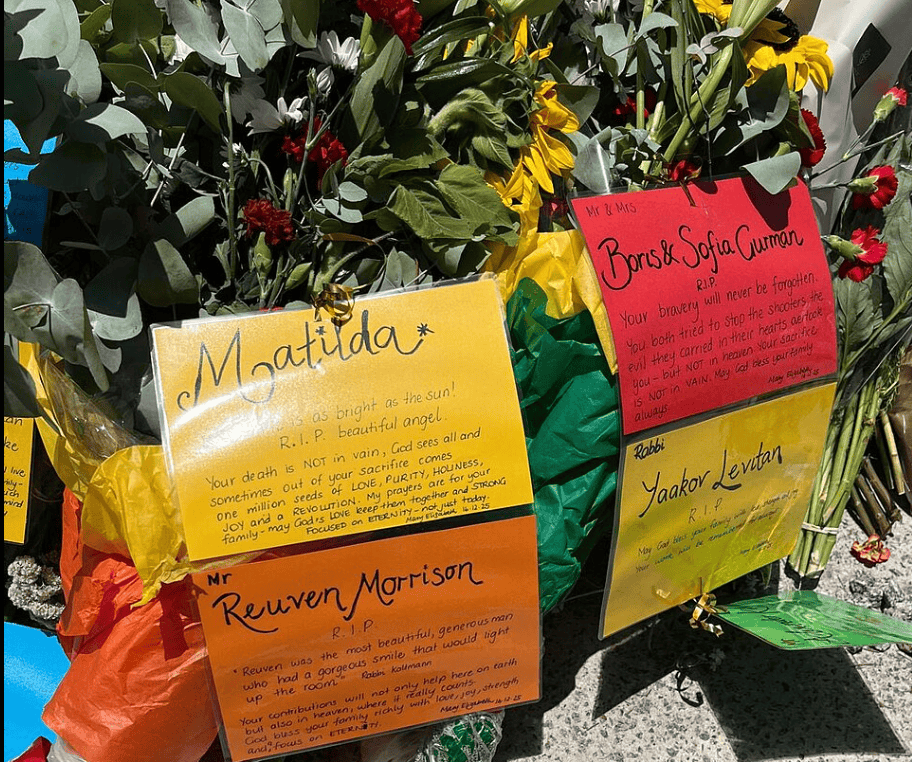 Matilda*
is as bright as the sun!
R.I.P. beautiful angel.
Your death is NOT in vain, God sees all and
sometimes out of your sacrifice comes
one million seeds of LOVE, PURITY, HOLINESS,
JOY and a REVOLUTION. My prayers are for your
family - may God's LOVE keep them together and STRONG
FOCUSED on ETERNITY - not just today.
Mary Elizabeth 16.12.25
Mr
Reuven Morrison
R.I.P
"Reuven was the most beautiful, generous man
who had a gorgeous smile that would light
up the room." Rabbi Kaltmann
Your contributions will not only help here on earth
but also in heaven, where it really counts.
God bless your family richly with love, joy, strength
and a focus on ETERNITY.
Mary Elizabeth 16.12.25
Mr & Mrs
Boris & Sofia Gurman
R.I.P.
Your bravery will never be forgotten.
You both tried to stop the shooters, the
evil they carried in their hearts overtook
you - but NOT in heaven. Your sacrifice
is NOT in VAIN. May God bless your family
always.
Mary Elizabeth 16.12.25
Rabbi
Yaakov Levitan
R.I.P
May God bless your family
Your work will be remembered
ke
I live